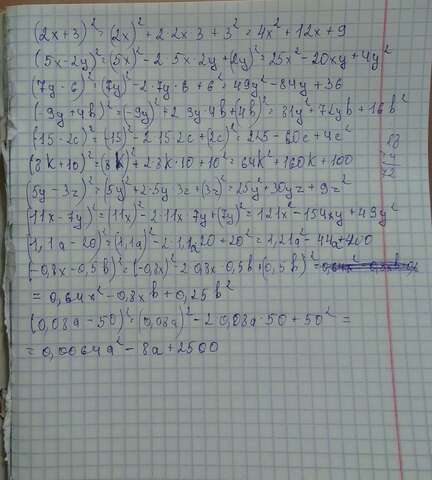 (2x+3)² = (2x)² + 2·2x·3 + 3² = 4x² + 12x + 9
(5x-2y)² = (5x)² - 2·5x·2y + (2y)² = 25x² - 20xy + 4y²
(7y-6)² = (7y)² - 2·7y·6 + 6² = 49y² - 84y + 36
(-9y+4b)² = (-9y)² + 2·9y·4b + (4b)² = 81y² + 72yb + 16b²
(15-2c)² = (15)² - 2·15·2c + (2c)² = 225 - 60c + 4c²
(8k+10)² = (8k)² + 2·8k·10 + 10² = 64k² + 160k + 100
(5y-3z)² = (5y)² + 2·5y·3z + (3z)² = 25y² + 30yz + 9z²
(11x-7y)² = (11x)² - 2·11x·7y + (7y)² = 121x² - 154xy + 49y²
(1,1a-20)² = (1,1a)² - 2·1,1a·20 + 20² = 1,21a² - 44a + 400
(-0,8x-0,5b)² = (-0,8x)² - 2·0,8x·0,5b + (0,5b)² =
= 0,64x² - 0,8xb + 0,25b²
(0,08a-50)² = (0,08a)² - 2·0,08a·50 + 50² =
= 0,0064a² - 8a + 2500
72